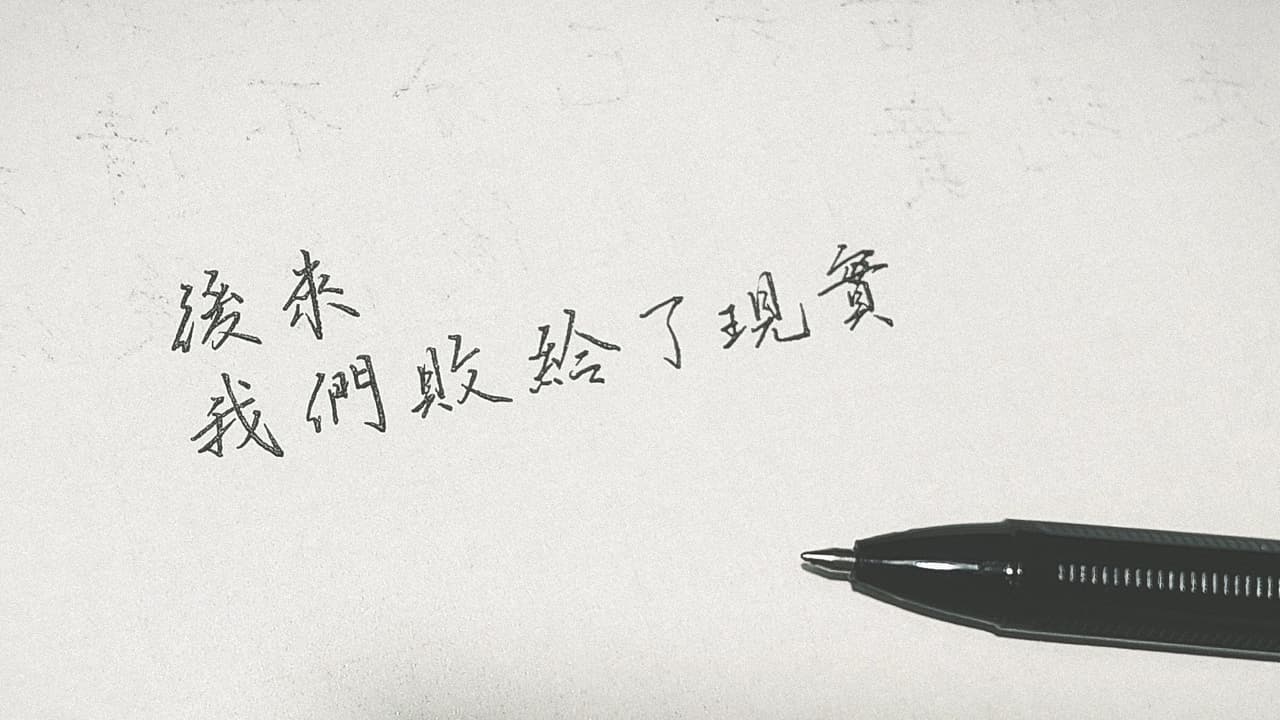 後來
我們敗給了現實